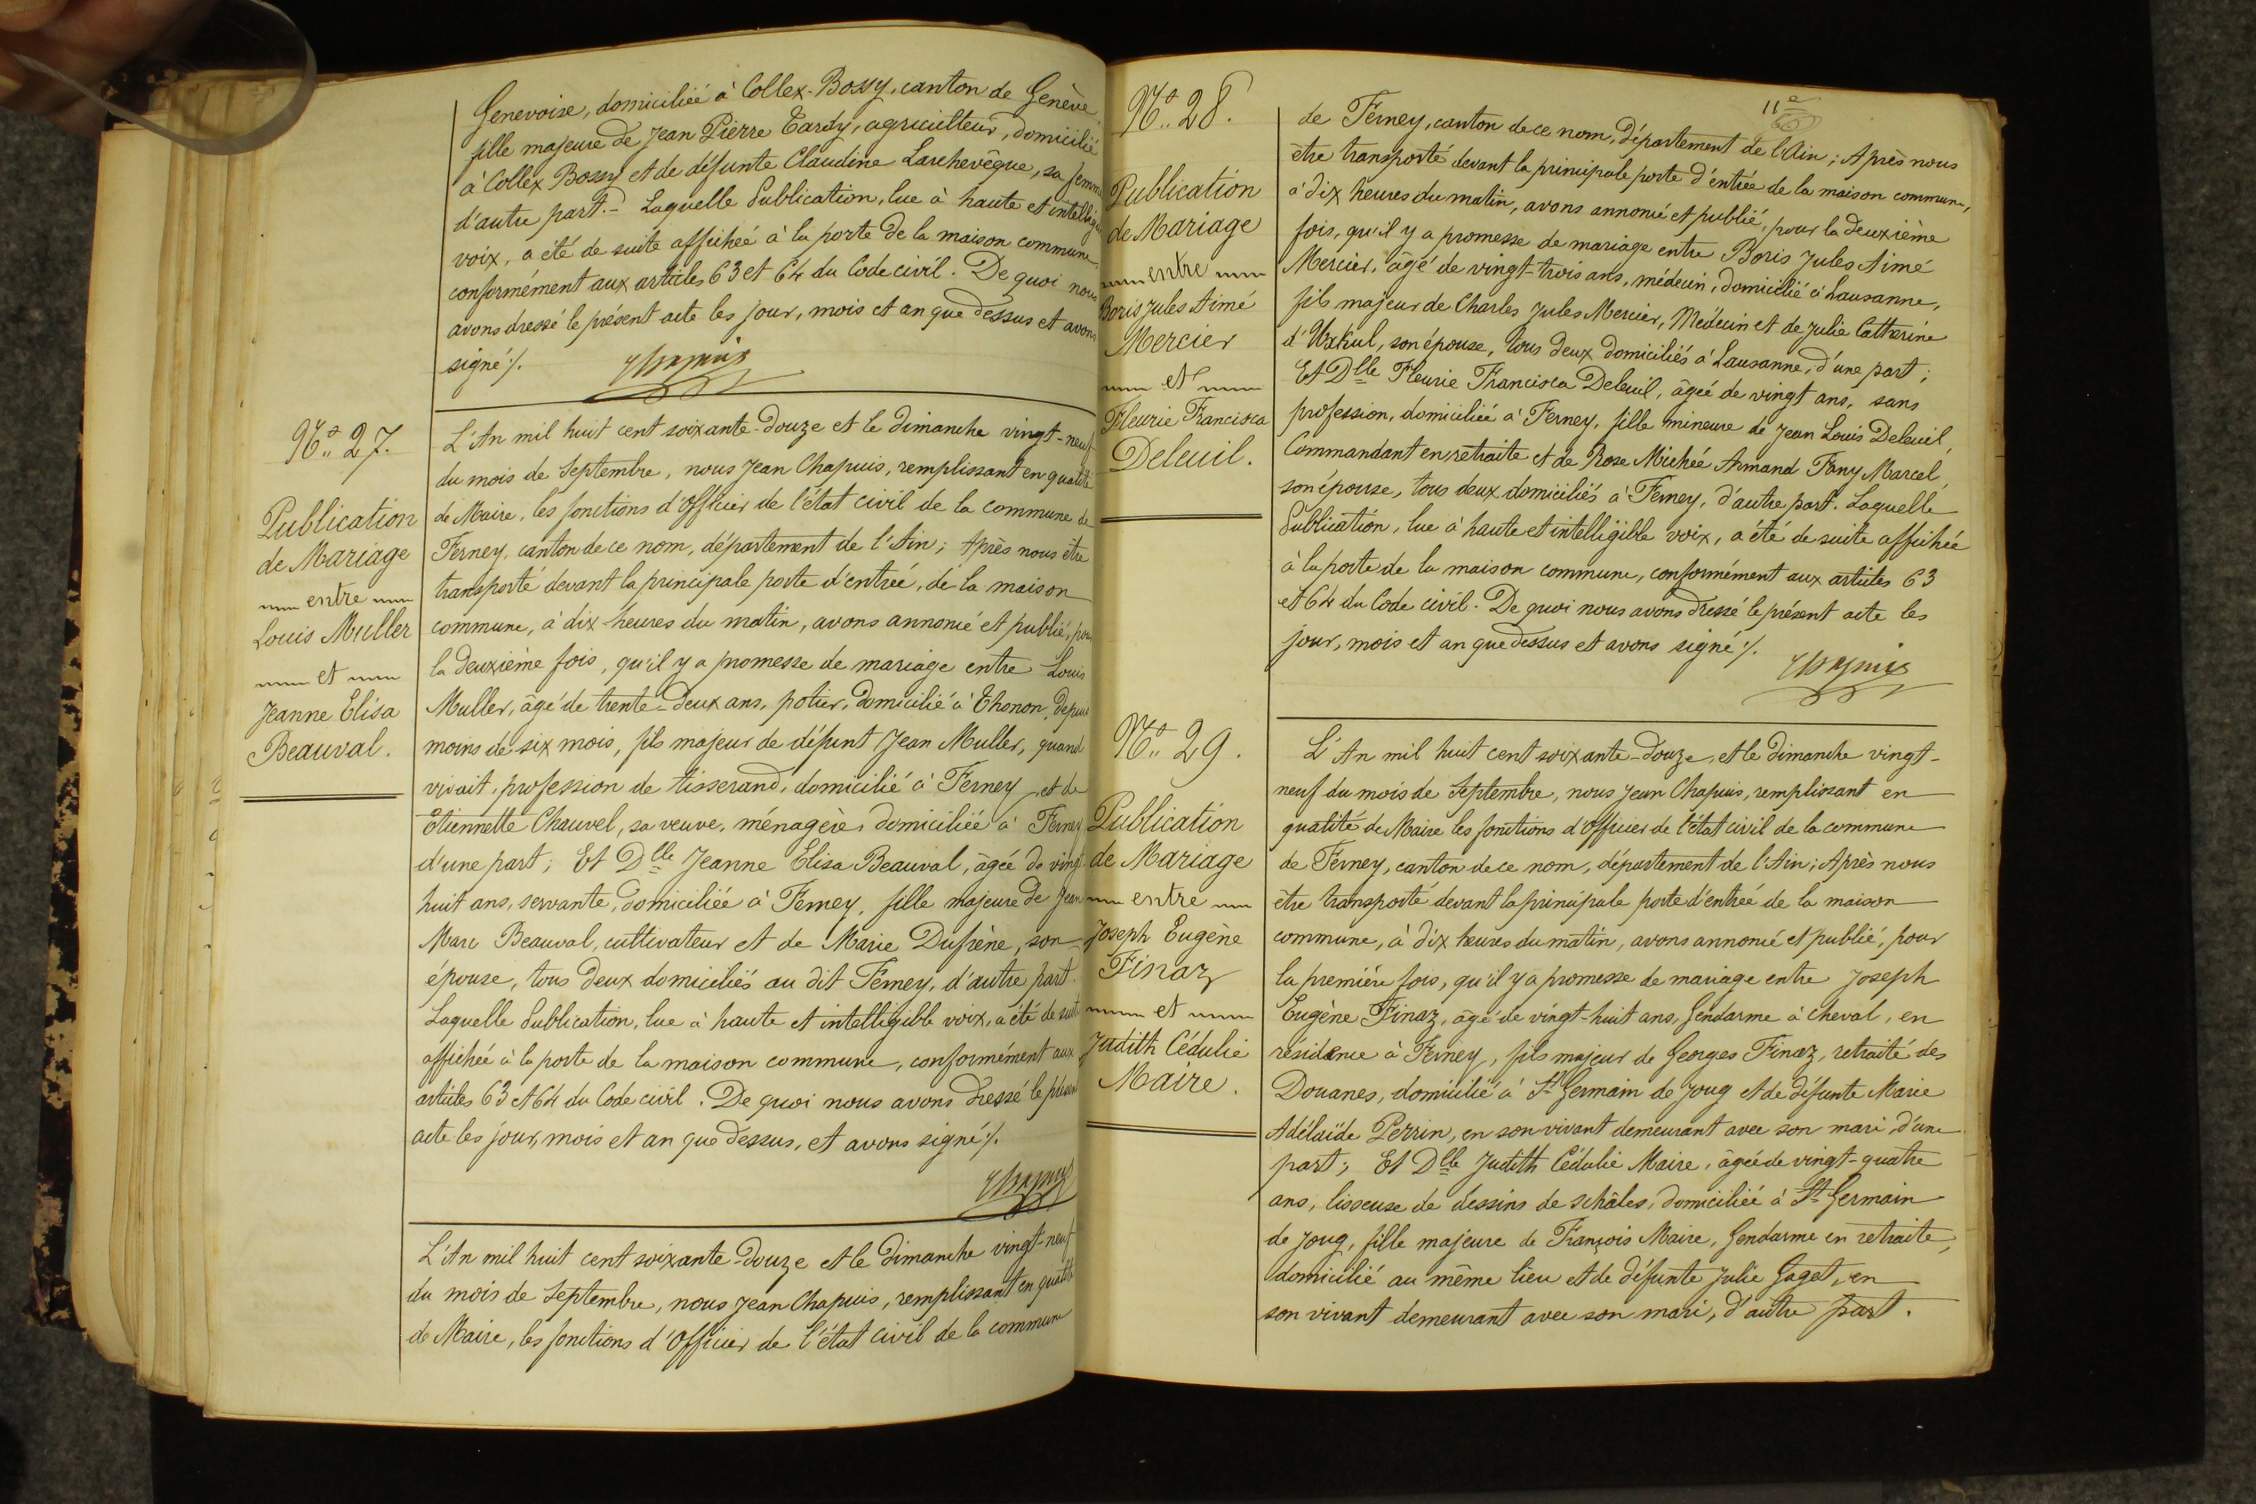 Genevoise, domiciliée à Collex-Bossy, canton de Genève,
fille majeure de Jean Pierre Tardy, agriculteur, domicilié
à Collex Bossy et de défunte Claudine Larchevêque, sa femme
d'autre part. Laquelle Publication, lue à haute et intelligible
voix, a été de suite affichée à la porte de la maison commune,
conformément aux articles 63 et 64 du Code civil. De quoi nous
avons dressé le présent acte les jour, mois et an que dessus et avons
signé ./.
Chapuis
N° 27.
Publication
de Mariage
entre
Louis Muller
et
Jeanne Elisa
Beauval.
L'An mil huit cent soixante-douze et le dimanche vingt-neuf
du mois de Septembre, nous Jean Chapuis, remplissant en qualité
de Maire, les fonctions d'Officier de l'état civil de la commune de
Ferney, canton de ce nom, département de l'Ain; Après nous être
transporté devant la principale porte d'entrée, de la maison
commune, à dix heures du matin, avons annoncé et publié, pour
la deuxième fois, qu'il y a promesse de mariage entre Louis
Muller, âgé de trente-deux ans, potier, domicilié à Thonon, depuis
moins de six mois, fils majeur de défunt Jean Muller, quand
vivait, profession de tisserand, domicilié à Ferney, et de
Etiennette Chauvel, sa veuve, ménagère, domiciliée à Ferney
d'une part; Et Dlle Jeanne Elisa Beauval, âgée de vingt
huit ans, servante, domiciliée à Ferney, fille majeure de Jean
Marc Beauval, cultivateur et de Marie Dufrène, son
épouse, tous deux domiciliés au dit Ferney, d'autre part.
Laquelle Publication, lue à haute et intelligible voix, a été de suite
affichée à la porte de la maison commune, conformément aux
articles 63 et 64 du Code civil. De quoi nous avons dressé le présent
acte les jour, mois et an que dessus, et avons signé ./.
Chapuis
L'An mil huit cent soixante-douze et le dimanche vingt-neuf
du mois de Septembre, nous Jean Chapuis, remplissant en qualité
de Maire, les fonctions d'Officier de l'état civil de la commune
11e
N° 28.
Publication
de Mariage
entre
Boris Jules Aimé
Mercier
et
Fleurie Francisca
Deleuil.
de Ferney, canton de ce nom, département de l'Ain; Après nous
être transporté devant la principale porte d'entrée de la maison commune,
à dix heures du matin, avons annoncé et publié, pour la deuxième
fois, qu'il y a promesse de mariage entre Boris Jules Aimé
Mercier, âgé de vingt-trois ans, médecin, domicilié à Lausanne,
fils majeur de Charles Jules Mercier, Médecin et de Julie Catherine
d'Uxkul, son épouse, tous deux domiciliés à Lausanne, d'une part;
Et Dlle Fleurie Francisca Deleuil, âgée de vingt ans, sans
profession, domiciliée à Ferney, fille mineure de Jean Louis Deleuil,
Commandant en retraite et de Rose Michée Armand Fany Marcel,
son épouse, tous deux domiciliés à Ferney, d'autre part. Laquelle
Publication, lue à haute et intelligible voix, a été de suite affichée
à la porte de la maison commune, conformément aux articles 63
et 64 du Code civil. De quoi nous avons dressé le présent acte les
jour, mois et an que dessus et avons signé ./.
Chapuis
N° 29.
Publication
de Mariage
entre
Joseph Eugène
Finaz
et
Judith Cédulie
Maire.
L'An mil huit cent soixante-douze, et le dimanche vingt-
neuf du mois de Septembre, nous Jean Chapuis, remplissant en
qualité de Maire les fonctions d'Officier de l'état civil de la commune
de Ferney, canton de ce nom, département de l'Ain; Après nous
être transporté devant la principale porte d'entrée de la maison
commune, à dix heures du matin, avons annoncé et publié, pour
la première fois, qu'il y a promesse de mariage entre Joseph
Eugène Finaz, âgé de vingt-huit ans, Gendarme à cheval, en
résidence à Ferney, fils majeur de Georges Finaz, retraité des
Douanes, domicilié à St Germain de Joug et de défunte Marie
Adélaïde Perrin, en son vivant demeurant avec son mari, d'une
part; Et Dlle Judith Cédulie Maire, âgée de vingt-quatre
ans, lisseuse de dessins de schâles, domiciliée à St Germain
de Joug, fille majeure de François Maire, Gendarme en retraite,
domicilié au même lieu et de défunte Julie Gaget, en
son vivant demeurant avec son mari, d'autre part.